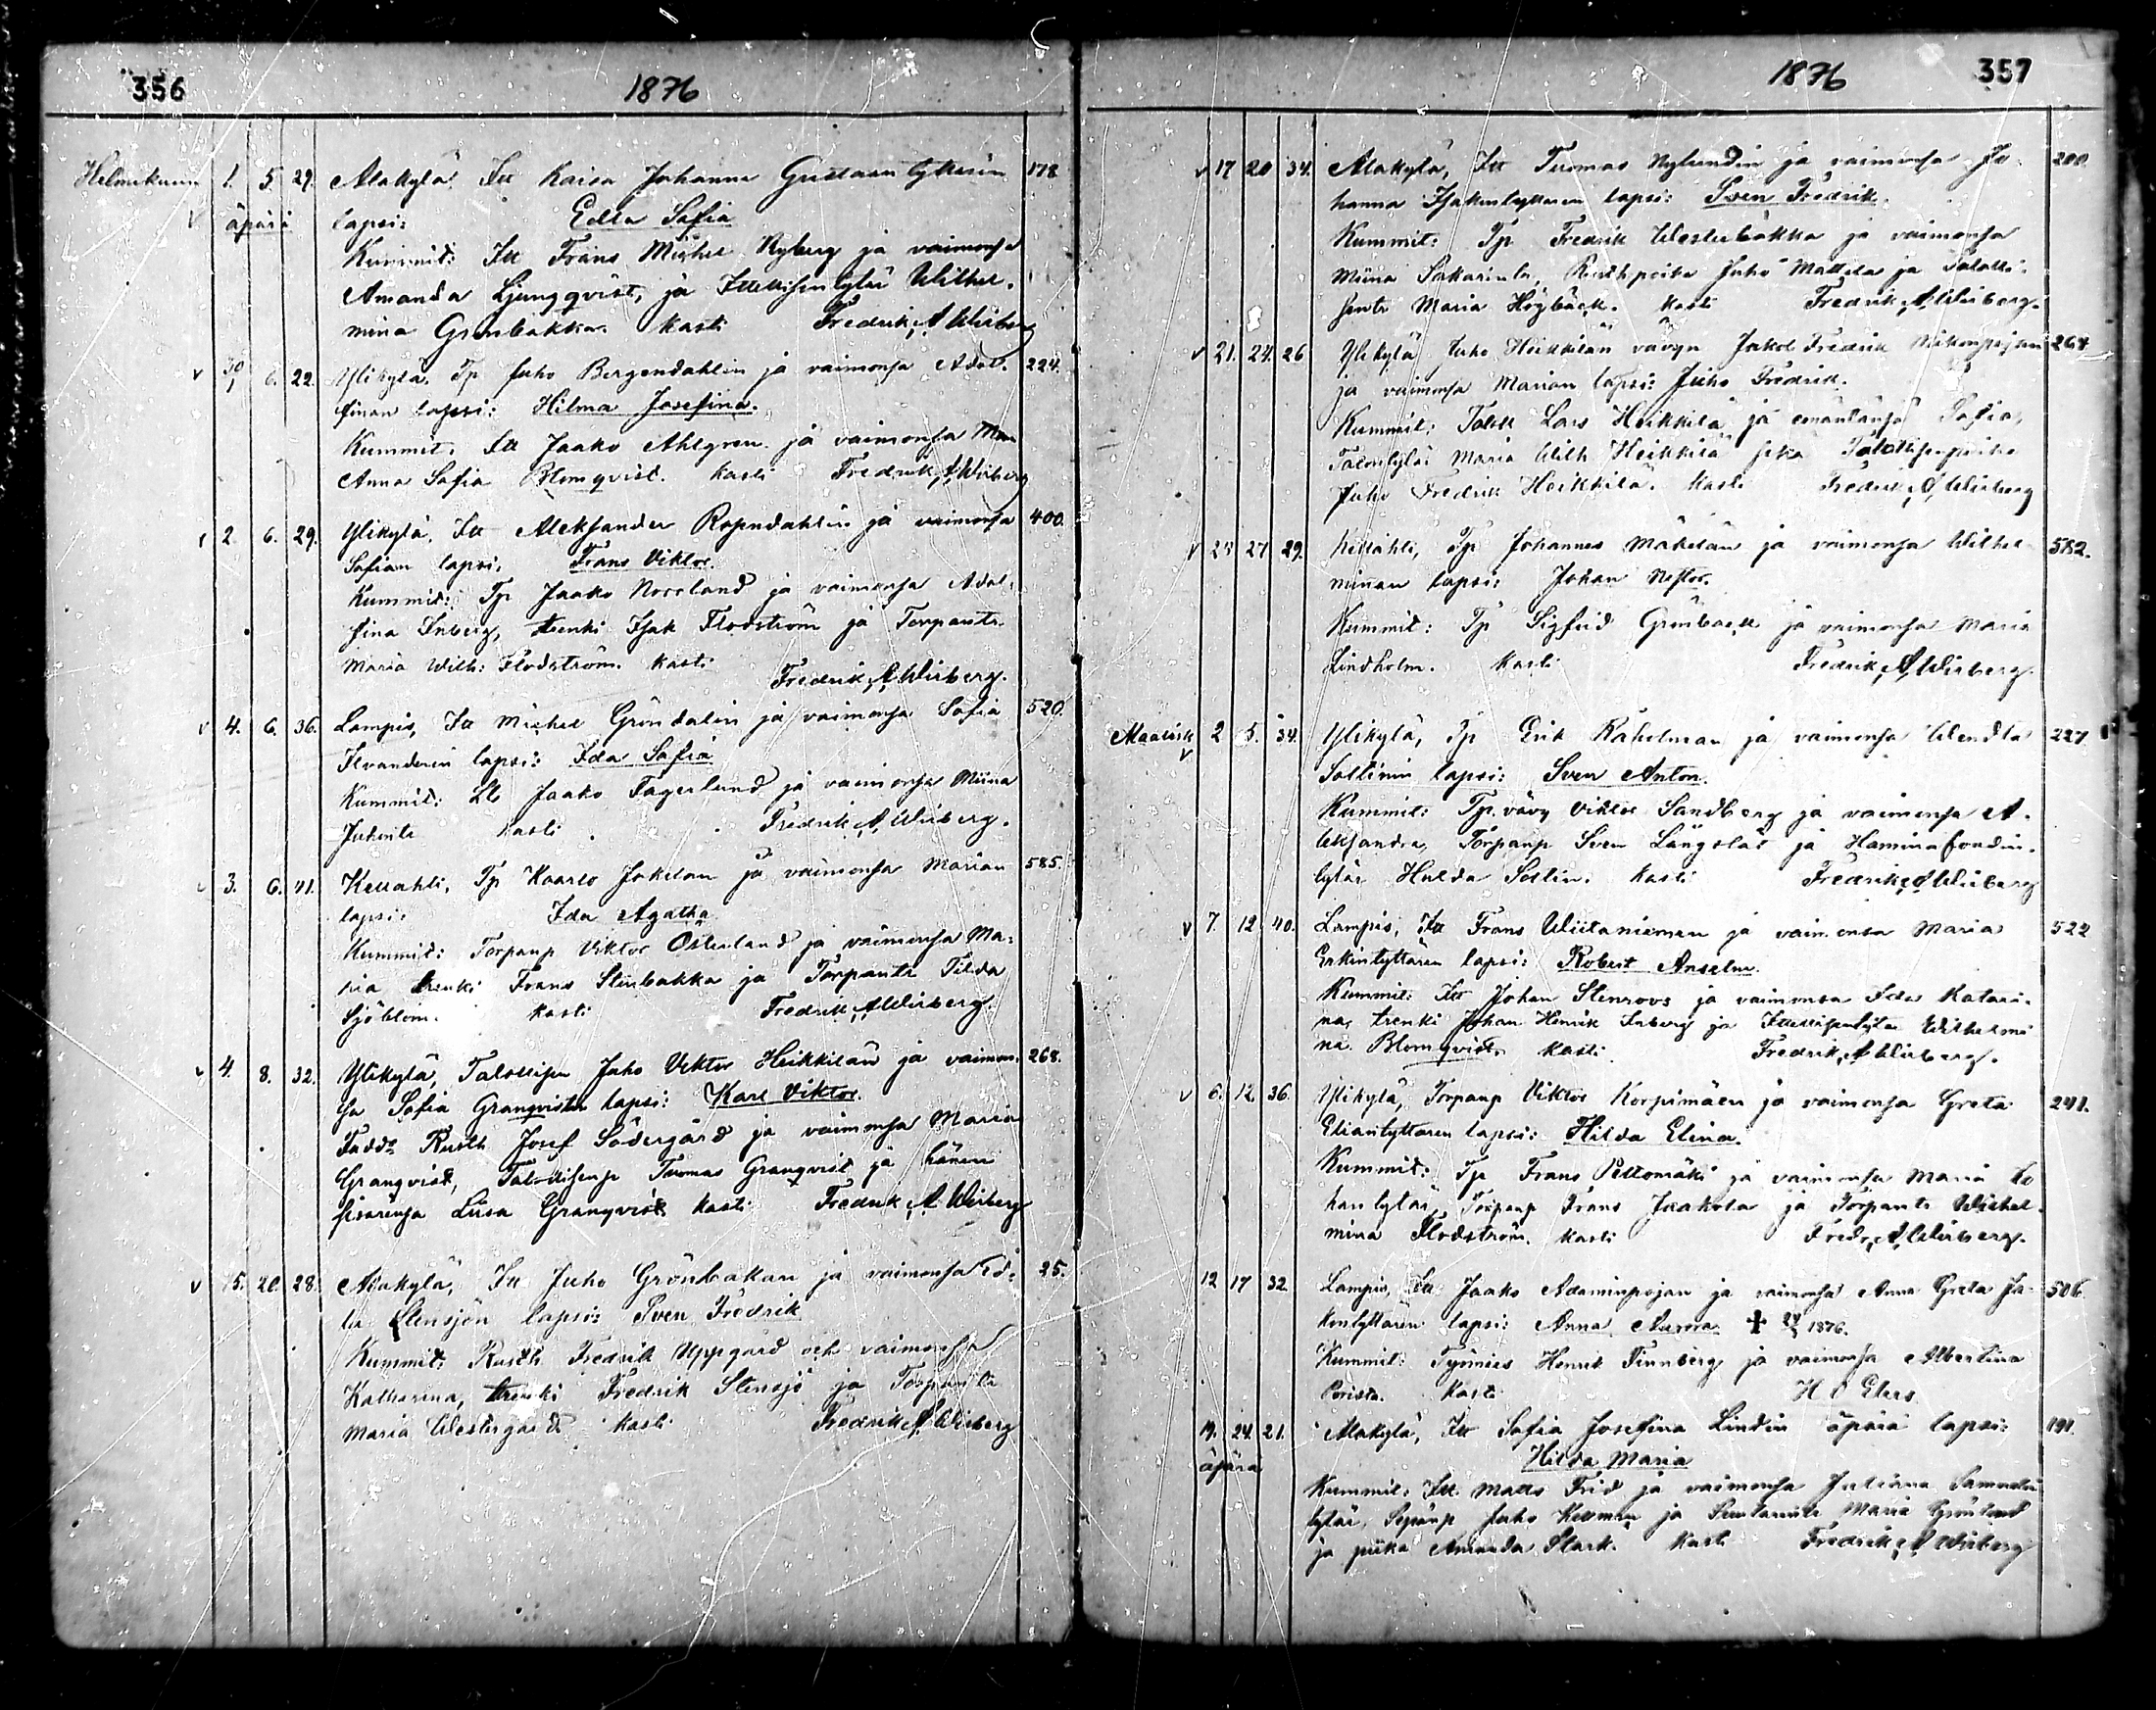 356
1876
Helmikuun 1. 5. 29. Alakylä, Itt Kaisa Johanna Gustaan tyttären 178
äpärä lapsi: Edla Sofia
Kummit: Itt Frans Michel Ryberg ja vaimonsa
Amanda Ljungqvist, ja Itsellisentytär Wilhel-
mina Grönbakka. Kasti Fredrik A Wirberg
30/1 6. 22. Ylikylä. Tp Juho Bergendahlin ja vaimonsa Adol- 224.
finan lapsi: Hilma Josefina.
Kummit. Itt Jaako Ahlgren ja vaimonsa
Anna Sofia Blomqvist. Kasti Fredrik A Wirberg
2. 6. 29. Ylikylä, Itt Aleksander Rosendahlin ja vaimonsa 400.
Sofian lapsi. Frans Viktor.
Kummit: Tp Jaako Norrland ja vaimonsa Adol-
fina Inberg, trenki Isak Flodström ja Torpantr
Maria Wilh: Flodström. Kasti
Fredrik A Wirberg.
4. 6. 36. Lampis, Itt Michel Gröndalin ja vaimonsa Sofia 520.
Ilvanderin lapsi: Ida Sofia
Kummit: Jaako Fagerlund ja vaimonsa Miina
Juhontr Kasti Fredrik A Wirberg.
3. 6. 41. Kellahti, Tp Kaarlo Jokelan ja vaimonsa Marian 585.
lapsi: Ida Agatha
Kummit: Torpanp Viktor Österland ja vaimonsa Ma-
ria trenki Frans Stenbakka ja Torpantr Tilda
Sjöblom. Kasti Fredrik A Wirberg.
4. 8. 32. Ylikylä, Talollisen Juho Viktor Heikkilän ja vaimon- 268.
sa Sofia Granqvistin lapsi: Karl Viktor.
Fadd: Rusth Josef Södergård ja vaimonsa Maria
Granqvist, Talollisenp Tuomas Granqvist ja hänen
sisarensa Liisa Granqvist Kasti Fredrik A Wirberg
15. 20. 28. Alakylä, Itt Juho Grönbakan ja vaimonsa Ed- 25.
la Stensjön lapsi: Sven Fredrik
Kummit: Rusth. Fredrik Uppgård och vaimonsa
Katharina, trenki Fredrik Stensjö ja Torpantr
Maria Westergård Kasti Fredrik A Wirberg
1876
357
17 20 34. Alakylä, Itt Tuomas Nylundin ja vaimonsa Jo- 200.
hanna Isakintyttären lapsi: Sven Fredrik.
Kummit: Tp Fredrik Westerbakka ja vaimonsa
Miina Sakarintr, Rusth poika Juho Mattila ja Talolli-
sentr Maria Högbäck. Kasti Fredrik A Wirberg.
21. 24. 26 Ylikylä Juho Heikkilän vävyn Jakob Fredrik Mikonpojan 264
ja vaimonsa Marian lapsi: Juho Fredrik.
Kummit: Talol Lars Heikkilä ja emäntänsä Sofia,
Talontytär Maria Wilh Heikkilä sekä Talollisenpoika
Juho Fredrik Heikkilä. Kasti Fredrik A Wirberg
25 27 29. Kellahti, Tp Johannes Mäkelän ja vaimonsa Wilhel- 582.
minan lapsi: Johan Nestor.
Kummit: Tp Sigfrid Grönback ja vaimonsa Maria
Lindholm. Kasti Fredrik A Wirberg.
Maalisk 2 5. 34. Ylikylä, Tp Erik Råholman ja vaimonsa Wendla 227
Sallinin lapsi: Sven Anton.
Kummit: Tp. vävy Viktor Sandberg ja vaimonsa A-
leksandra, Torpanp Sven Långslät ja Haminafoudin-
tytär Hulda Sallin. Kasti Fredrik A Wirberg
7. 12 40. Lampis, Itt Frans Wiitanieman ja vaimonsa Maria 522
Erkintyttären lapsi: Robert Anselm.
Kummit: Itt Johan Stenroos ja vaimonsa Ida Katari-
na, trenki Johan Henrik Inberg ja Itsellisentytär Wilhelmi
na Blomqvist. Kasti Fredrik A Wirberg.
6. 12. 36. Ylikylä, Torpanp Viktor Korpimäen ja vaimonsa Greta 241.
Eliantyttären lapsi: Hilda Elina.
Kummit: Tp Frans Peltomäki ja vaimonsa Maria Jo
han tytär, Torpanp Frans Jaakola ja Torpantr Wilhel-
mina Flodström. Kasti Fredr. A Wirberg.
12 17 32 Lampis, Itt Jaako Adaminpojan ja vaimonsa Anna Greta Ja- 506
kontyttären lapsi: Anna Aurora † 1876.
Kummit: Työmies Henrik Finnberg ja vaimonsa Albertina
Porista. Kasti
19. 24. 21. Alakylä, Itt Sofia Josefina Lindin äpärä lapsi: 191.
äpärä Hilda Maria
Kummit: Itt. Matts Frid ja vaimonsa Juliana Samuelin
tytär, Sepänp Juho Kellman ja Maria Grönlund
ja piika Amanda Stark. Kasti Fredrik A Wirberg